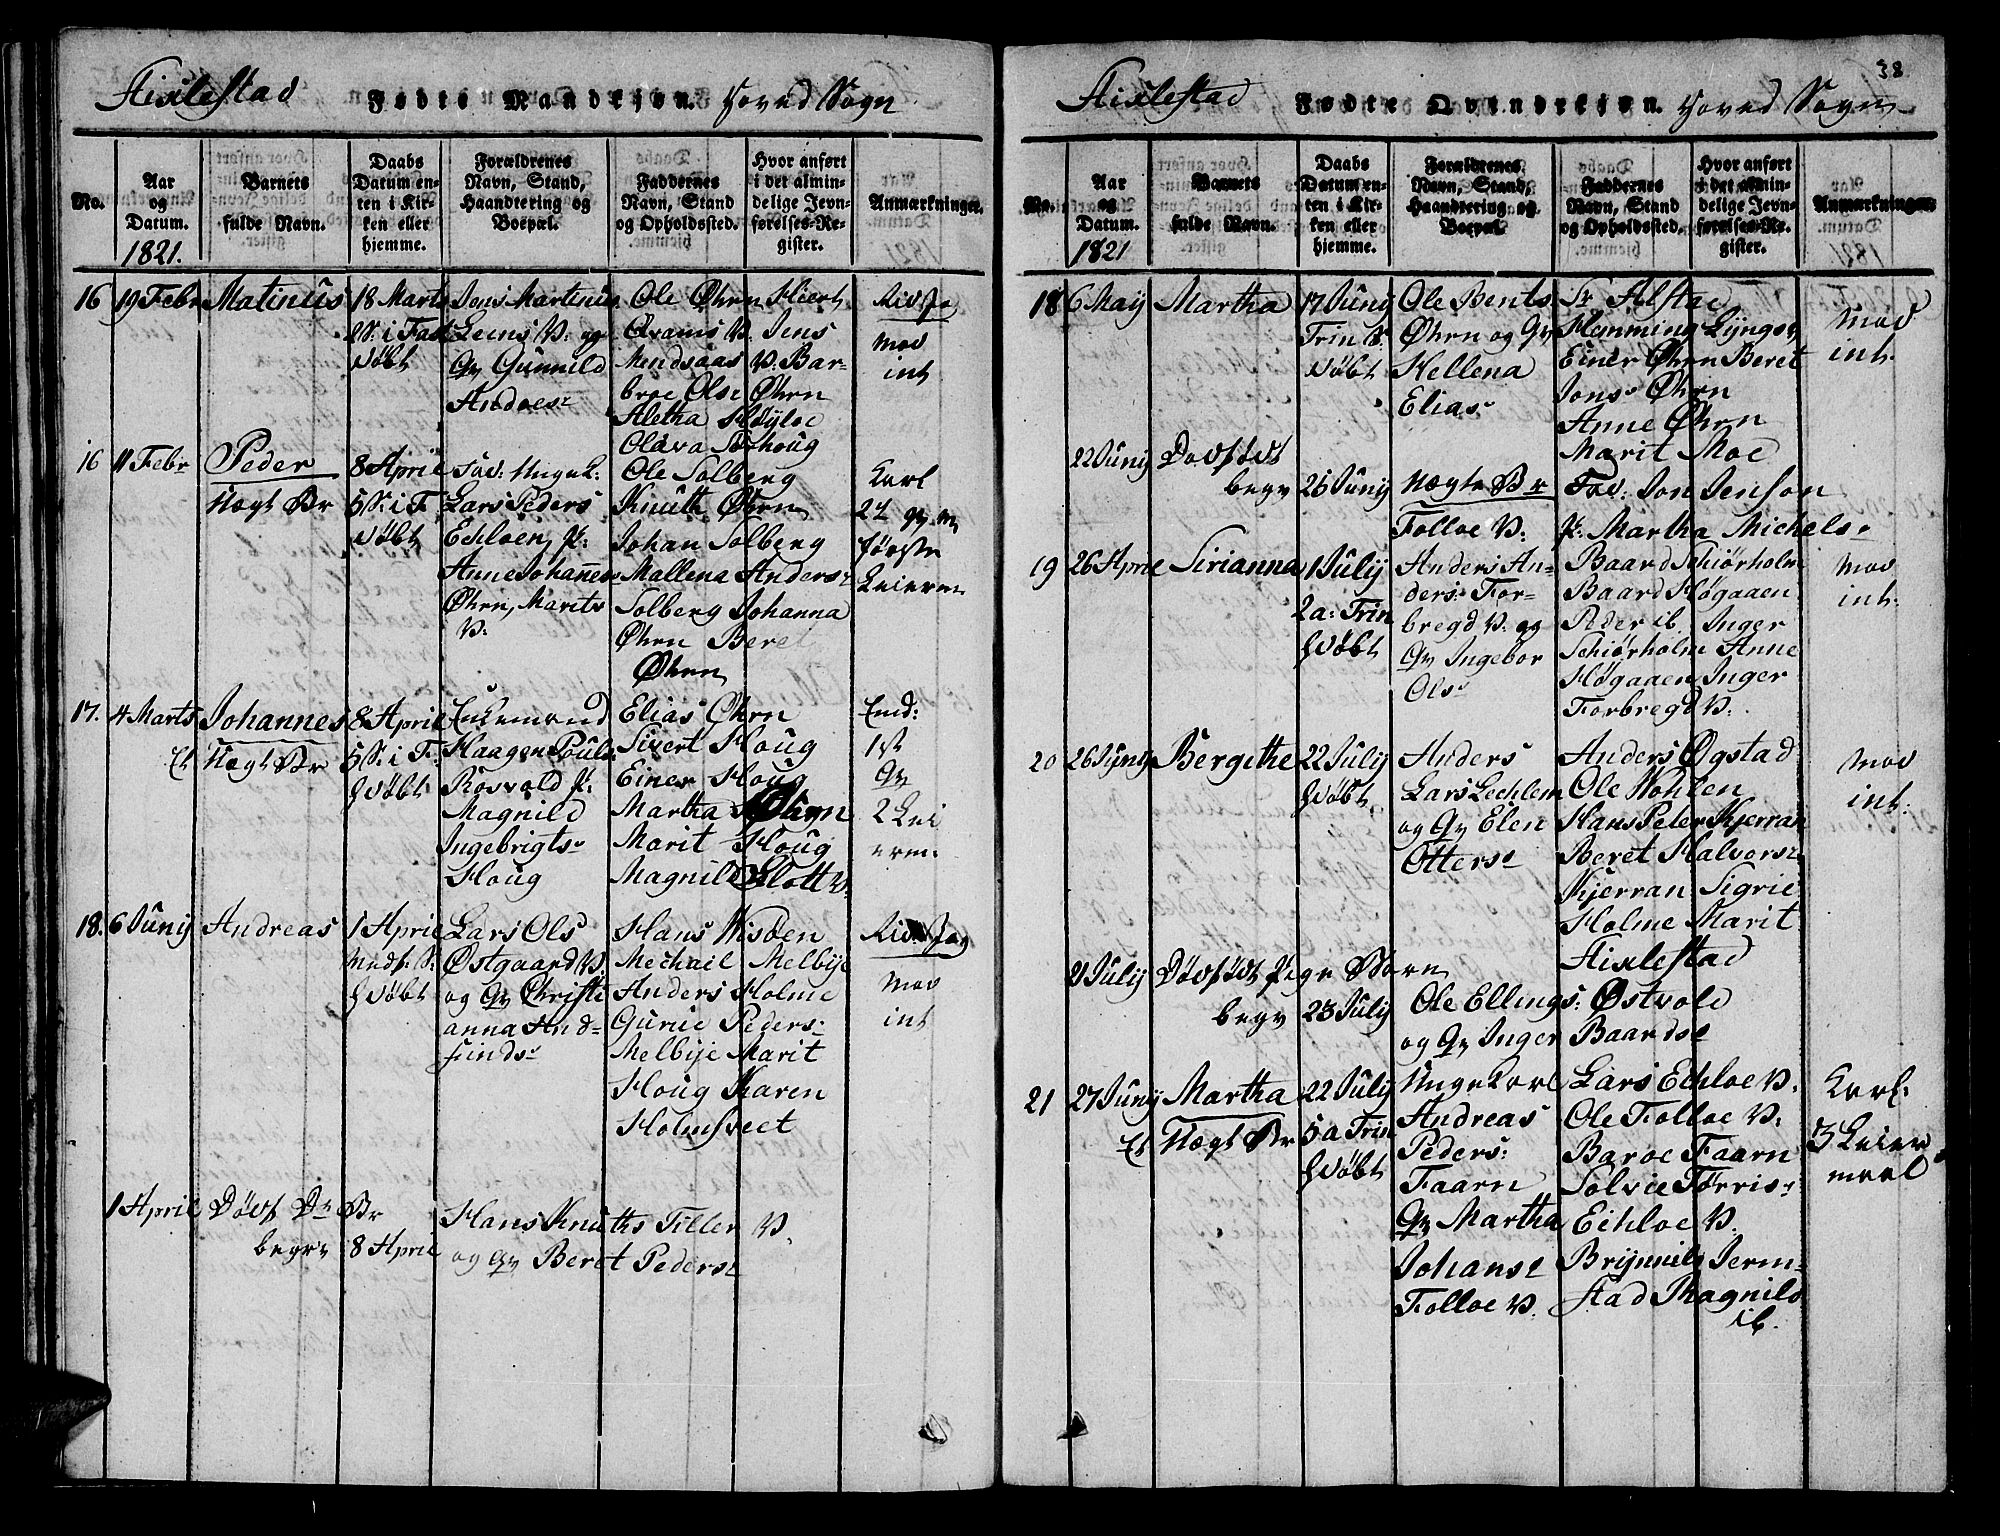 Stiklestad Fødte Mandkjøn. Hoved Sogn
No.
Aar og Datum. 1821.
Barnets fulde Navn.
Daabs Datum enten i Kirken eller hjemme.
Forældrenes Navn, Stand, Haandtering og Boepæl.
Faddernes Navn, Stand og Opholdssted.
Hvor anført i det almindelige Jevnførelses-Register.
Anmærkninger.
16 19 Febr Matinus 18 Marts
2 S: i Fast
døbt
Jens Martinus
Leens V: og
Qv Gunnild
Andors
Ole Øhrn Hiert
Qvams V. Jens
Mendsaas V. Bar-
broe Olse Øhrn
Aletha Høyloe
Olava Torhoug
mod
int
16 11 Febr Peder
Uægt Br
8 April
5 S: i F.
døbt
Fad: Unge K:
Lars Peders
Echloen p:
Anne Johannes
Øhrn, Marits
V:
Ole Solberg
Knuth Øhrn
Johan Solberg
Mallena Anders
Solberg Johanna
Øhrn Beret
Øhrn
Karl
2d gang
første
Leierm
17. 4 Marts Johannes
Et Uægt Br
8 April
5 S: i F.
døbt
Enkemand
Haagen Pouls
Rosvold p:
Magnild
Ingebrigts
Houg
Elias Øhrn
Sivert Houg
Einer Houg
Martha Øhrn
Marit Houg
Magnild Slott V.
Enk:
1st
Qv
2 Lei
erm.
18. 6 Juny Andreas
1 April
Midf: S:
døbt
Lars Ols
Østgaard V.
og Qv Christi
anna And-
finds
Hans Wisben
Mechail Melbye
Anders Holme
Gurue Peders:
Melbye Marit
Houg Karen
Holmsveet
mod
int
1 April Dødf D Br
begr. 8 April
Hans Knuths Tiller V.
og Qv Beret Peders
Stiklestad Fødte Qvindekjøn. Hoved Sogn
38
No.
Aar og Datum. 1821
Barnets fulde Navn.
Daabs Datum enten i Kirken eller hjemme.
Forældrenes Navn, Stand, Haandtering og Boepæl.
Faddernes Navn, Stand og Opholdssted.
Hvor anført i det almindelige Jevnførelses-Register.
Anmærkninger.
18 6 May Martha 17 Juny
Trin S.
døbt
Ole Bents
Øhrn og Qv
Hellena
Elias
Sr Alstad
Hemming Lyngs
Einer Øhrn Beret
Jons Øhrn
Anne Øhrn
Marit Moe
mod
int.
22 Juny Dødfødt
begr 25 Juny
Uægte Br
Folloe V.
Fad: Jon Jenson
p: Martha Michels
19 26 April Sirianna 1 July
2 a: Trin
døbt
Anders An-
ders: For-
bregd V. og
Qv Ingebor
Ols
Baard Schiørholm
Baard Høgaaen
Peder ib. Inger
Schiørholm Anne
Høgaaen Inger
Forbregd V.
mod
int.
20 26 Juny Bergithe 22 July
døbt.
Anders
Lars Lechlem
og Qv Elen
Otters
Anders Øgstad
Ole Wohlen
Hans Peter Kjerran
Beret Halvors
Kjerran Sigrie
Holme Marit
Stiklestad
mod
int.
21 July Dødfødt Pige Barn
begr 23 July
Ole Ellings: Østvold
og Qv Inger Baards
21 27 Juny Martha
Et Uægt Br
22 July
5 a Trin
døbt
Unge Karl
Andreas
Peders:
Faarn
Qv Martha
Johans
Folloe V.
Lars Echloe V.
Ole Folloe V.
Baroe Faarn
Solvie Torris
Echloe V.
Brynnild Jerm-
stad Magnild
ib.
Karl:
3 Leier
maal